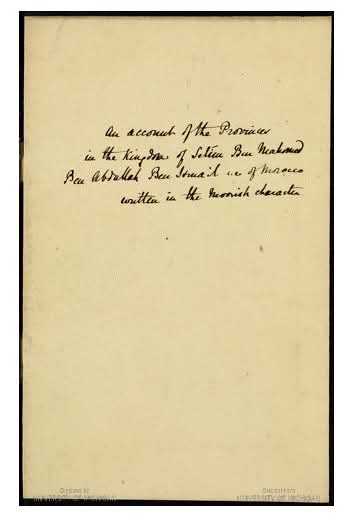 An account of the Provinces
in the Kingdom of Selim Ben Mahomed
Ben Abdullah Ben Ismail i.e of Morocco
written in the Moorish character
Digitized by
UNIVERSITY OF MICHIGAN
Original from
UNIVERSITY OF MICHIGAN